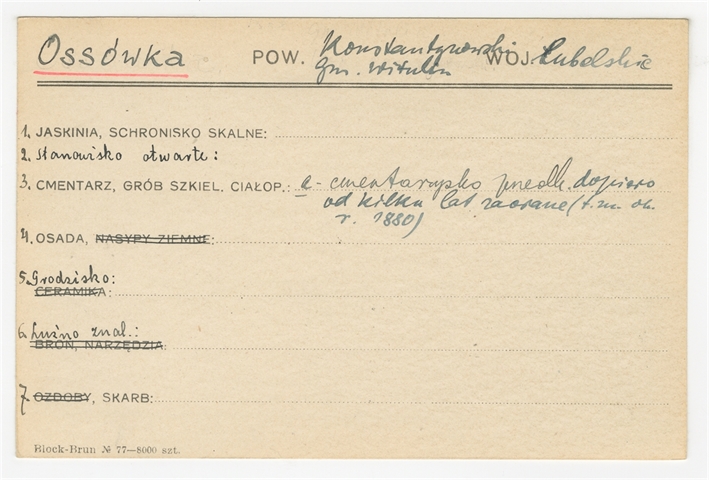 Ossówka POW. Konstantynowski WOJ. Lubelskie
gm. Witulin
1. JASKINIA, SCHRONISKO SKALNE:
2. Stanowisko otwarte:
3. CMENTARZ, GRÓB SZKIEL. CIAŁOP.: a - cmentarzysko przedh. dopiero
od kilku lat zaorane (t.zn. ok.
r. 1880)
4. OSADA, NASYPY ZIEMNE:
5. Grodzisko:
CERAMIKA:
6. Luźno znal.:
BROŃ, NARZĘDZIA:
7. OZDOBY, SKARB:
Block-Brun № 77—8000 szt.